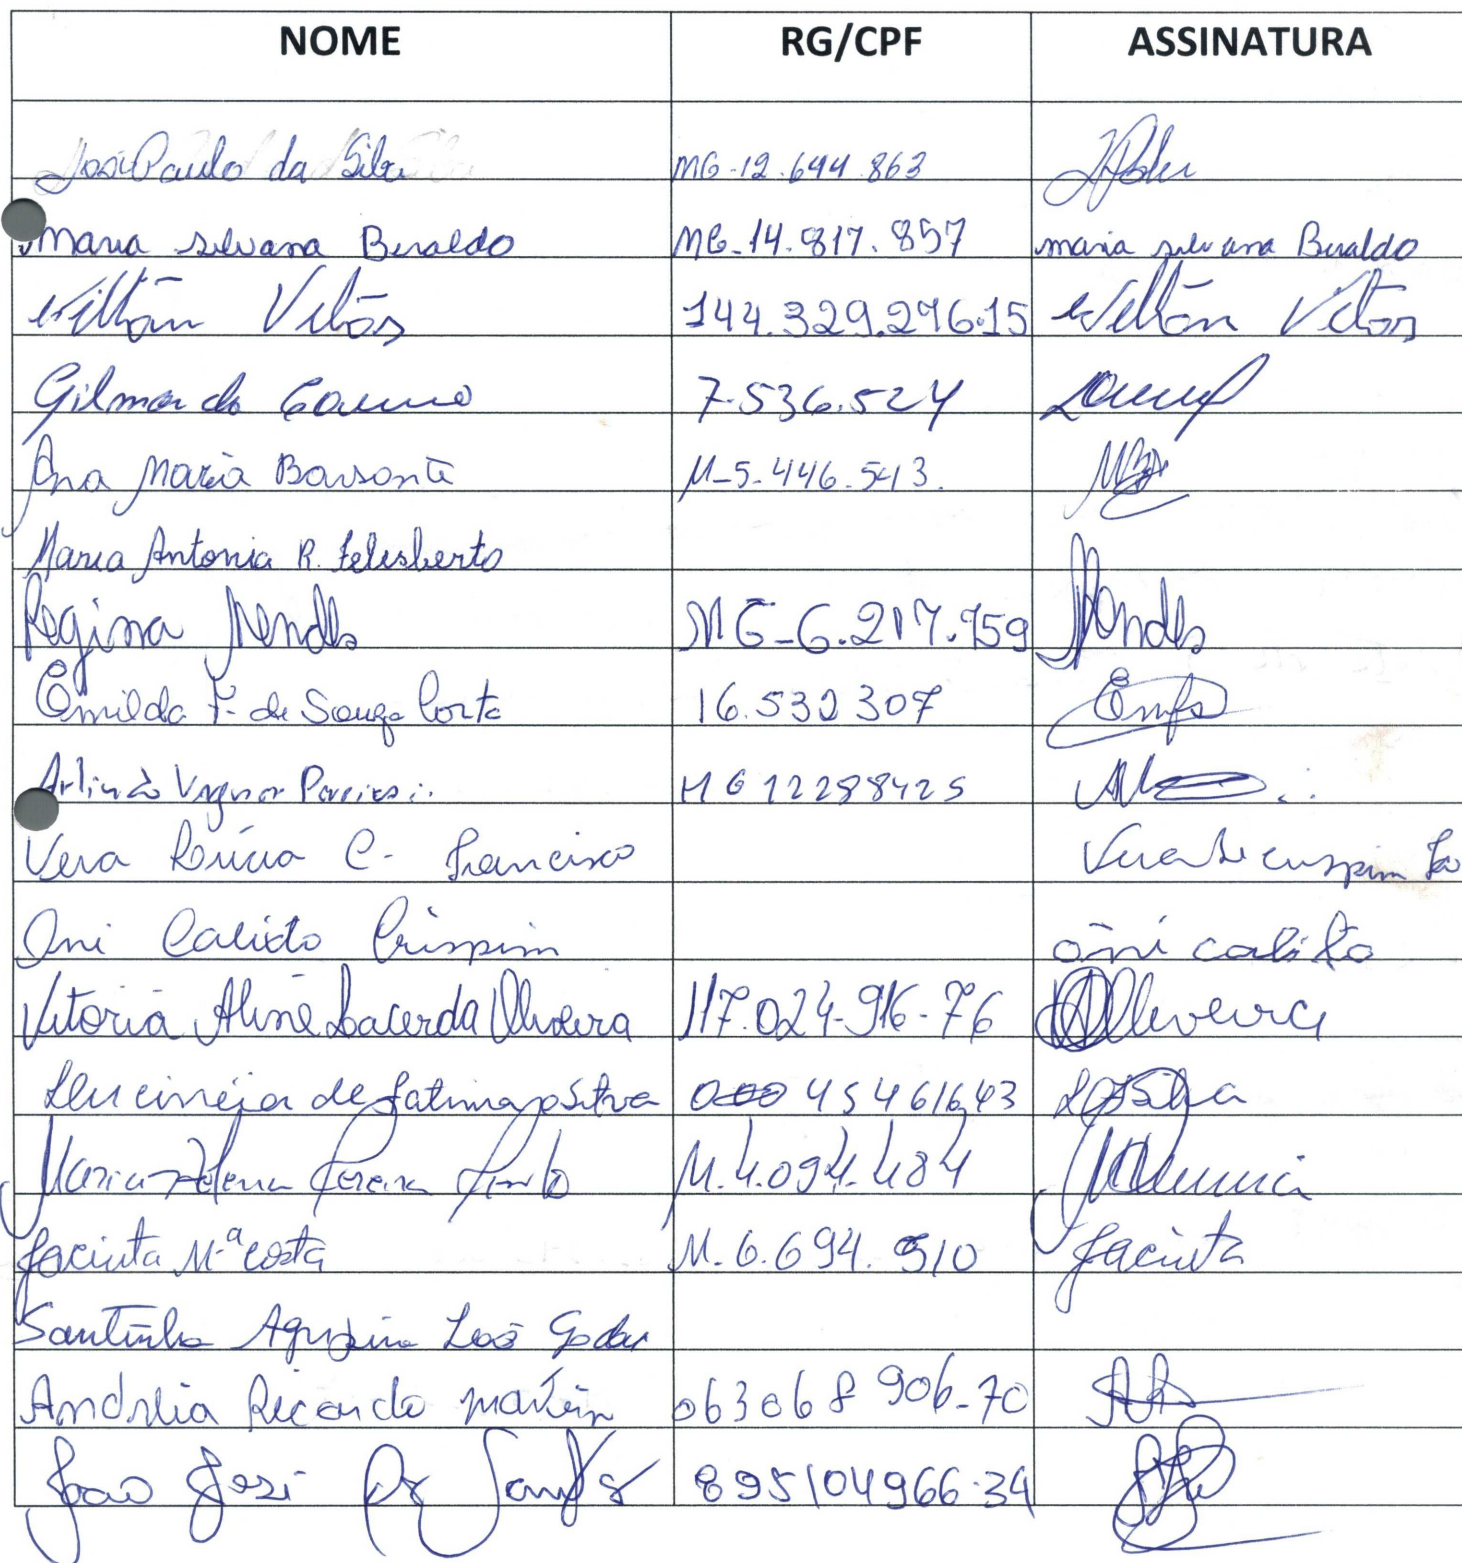 NOME RG/CPF ASSINATURA
José Paulo da Silva MG-12.644.863
Maria Silvana Beraldo MG-14.817.857 maria silvana Beraldo
Wiltôn Vitôr 144.329.296.15 Wiltôn Vitôr
Gilmar do Carmo 7.536.524
Ana Maria Barsante M-5.446.543.
Maria Antonia R. Felisberto
Regina Mendes MG-6.217.759 Mendes
Enilda F. de Souza Costa 16.532 307
Arlindo Vagner MG 12288425
Vera Lúcia C. Francisco
Oni Calixto Crispim oni calisto
Vitoria Aline Lacerda Oliveira 117.024-916-76 Oliveira
de Fatima p Silva 45461643
Maria Helena Pereira M.4.094.484
Jacinta Mª Costa M.6.694.510 Jacinta
Andrelia Ricardo martin 063068 906-70
Joao José Santos 895104966-34